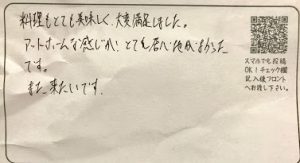 料理もとても美味しく、大変満足しました。
アットホームな感じが、とても居心地がよかった
です。
また、来たいです。
スマホでも投稿
OK！チェック欄
記入後フロント
へお渡し下さい。